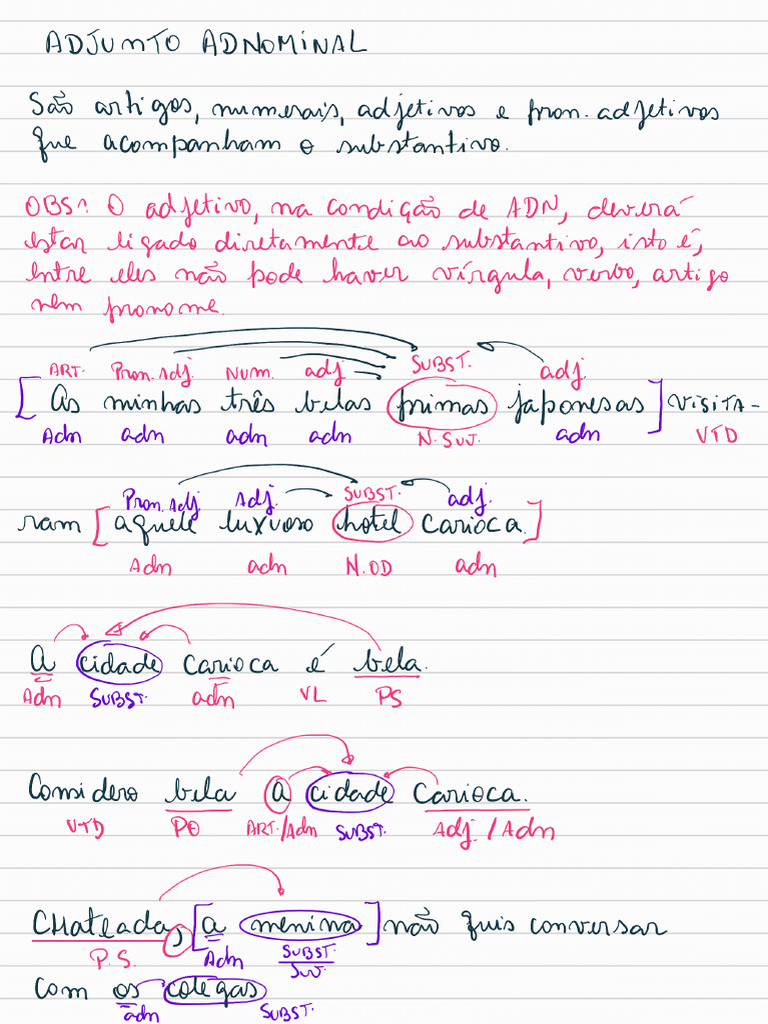 ADJUNTO ADNOMINAL
São artigos, numerais, adjetivos e pron. adjetivos
que acompanham o substantivo.
OBS: O adjetivo, na condição de ADN, deverá
estar ligado diretamente ao substantivo, isto é,
entre eles não pode haver vírgula, verbo, artigo
nem pronome.
ART. Pron. Adj. Num. adj SUBST. adj.
[As minhas três belas primas japonesas] visita-
Adn adn adn adn N. SUJ. adn VTD
Pron. adj Adj. SUBST. adj.
ram [aquele luxuoso hotel carioca.]
Adn adn N. OD adn
A cidade carioca é bela.
Adn SUBST. adn VL PS
Considero bela a cidade carioca.
VTD PO ART./Adn SUBST. Adj. / Adn
CHateada, [a menina] não quis conversar
P.S. Adn SUBST.
SUJ.
com os colegas
adn SUBST.